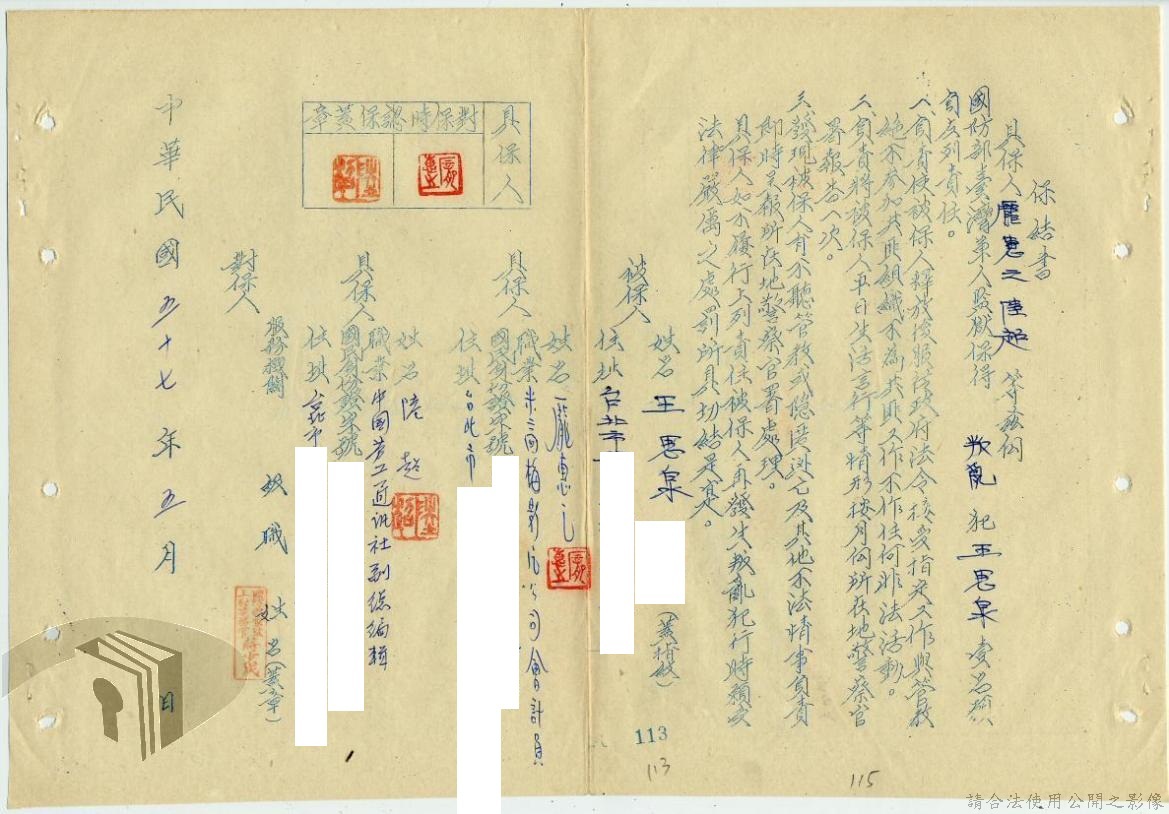 保結書
具保人龐惠之 陸超 等茲向
國防部臺灣軍人監獄保得 叛亂 犯 王思泉 壹名願
負左列責任。
一、負責使被保人釋放後服從政府法令接受指定工作與管教
絕不參加共匪組織不為共匪工作不作任何非法活動。
二、負責將被保人平日生活言行等情形按月向所在地警察官
署報告一次。
三、發現被保人有不聽管教或隱匿逃亡及其他不法情事負責
即時呈報所在地警察官署處理。
具保人如不履行上列責任被保人再發生叛亂犯行時願受
法律嚴厲之處罰所具切結是實。
被保人
姓名 王思泉 (蓋指紋)
住址 台北市
具保人
姓名 龐惠之
職業 米高梅影片公司會計員
國民身份證字號
住址 台北市
具保人
姓名 陸超
職業 中國勞工通訊社副總編輯
國民身份證字號
住址
對保人
服務機關 級職 姓名(蓋章)
具保人
對保時認保蓋章
中華民國五十七年五月 日
113
113
115
請合法使用公開之影像